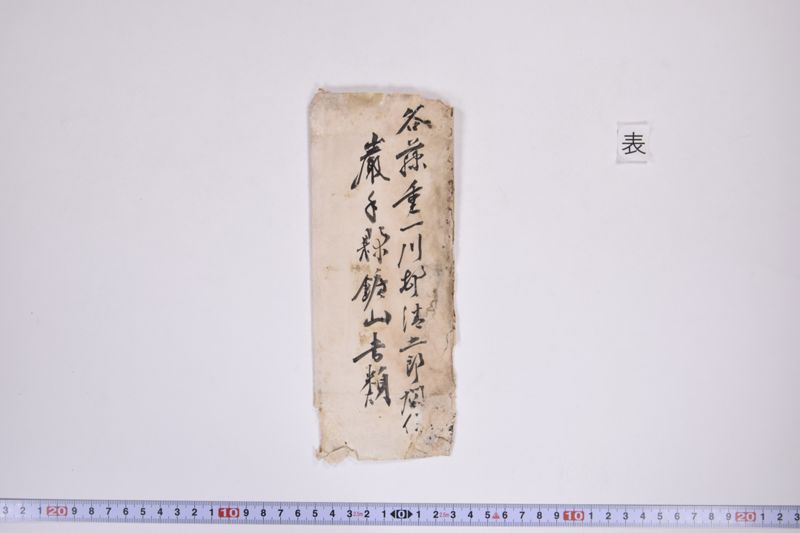 谷藤重一川村清五郎關係
巌手縣鑛山書類
表
3 2 1 20 9 8 7 6 5 4 3 2 1 10 9 8 7 6 5 4 3 2 1 0 1 2 3 4 5 6 7 8 9 10 1 2 3 4 5 6 7 8 9 20 1 2 3